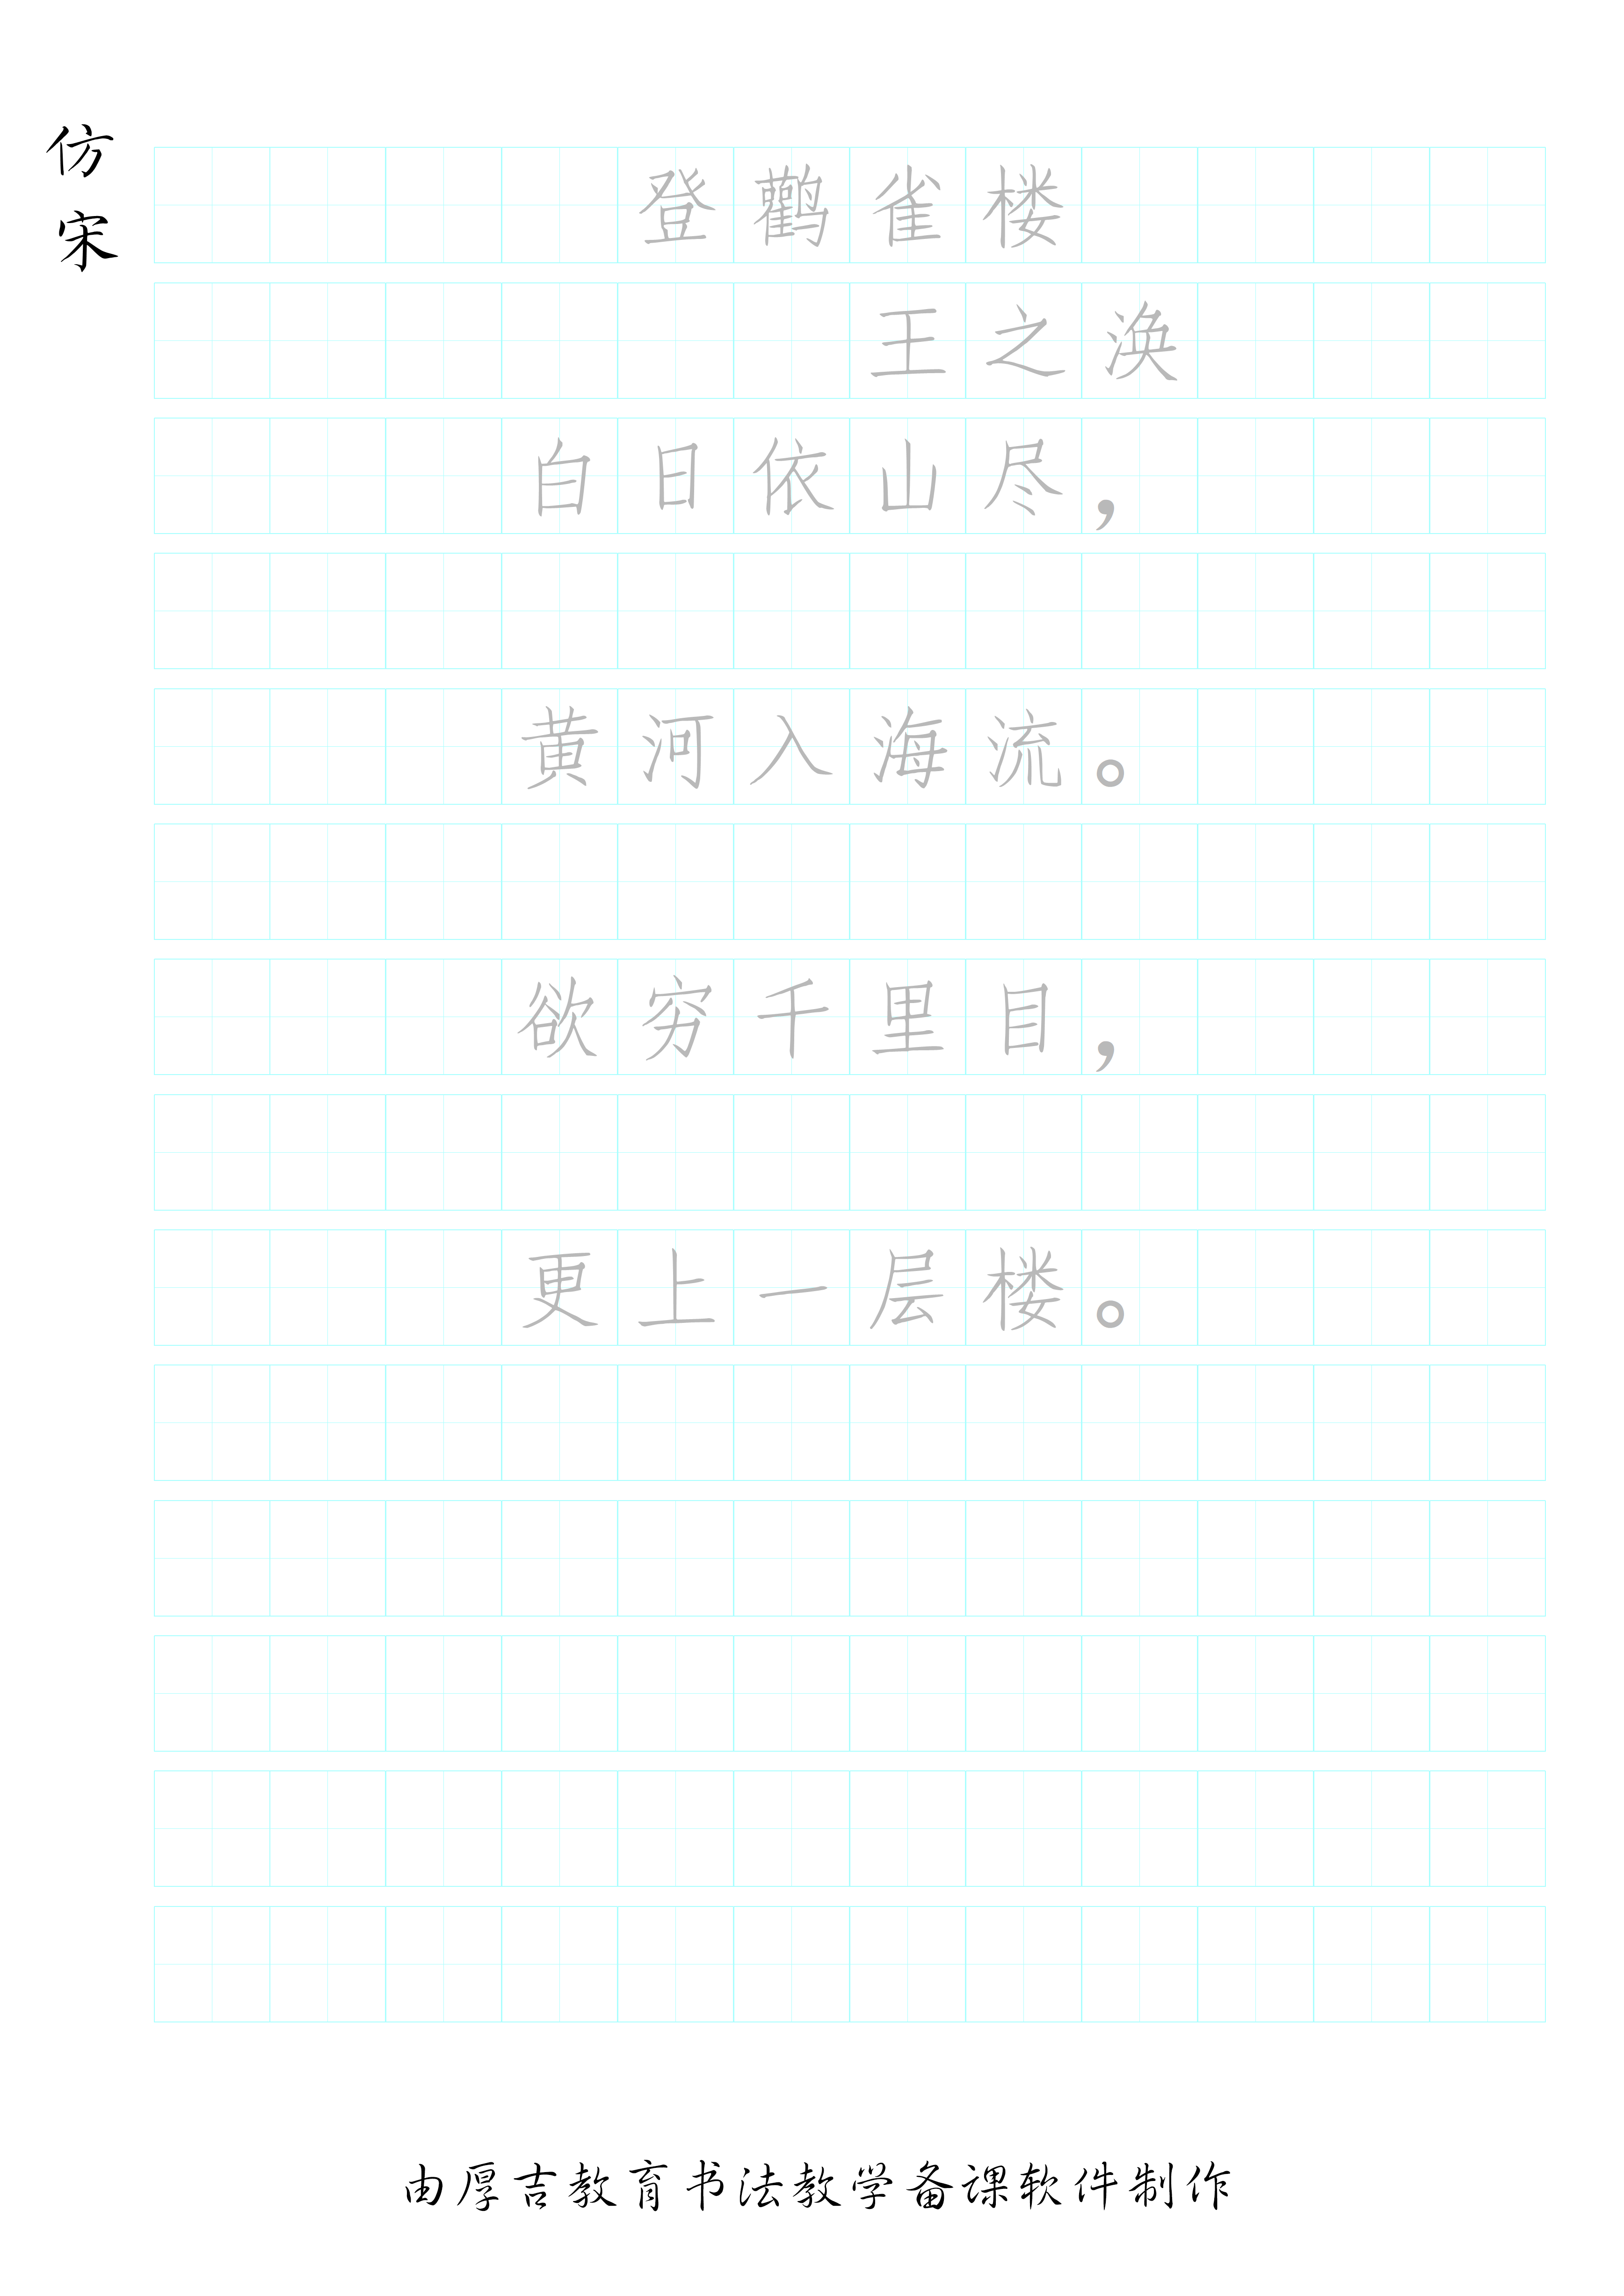 仿宋
登鹳雀楼
王之涣
白日依山尽，
黄河入海流。
欲穷千里目，
更上一层楼。
由厚吉教育书法教学备课软件制作